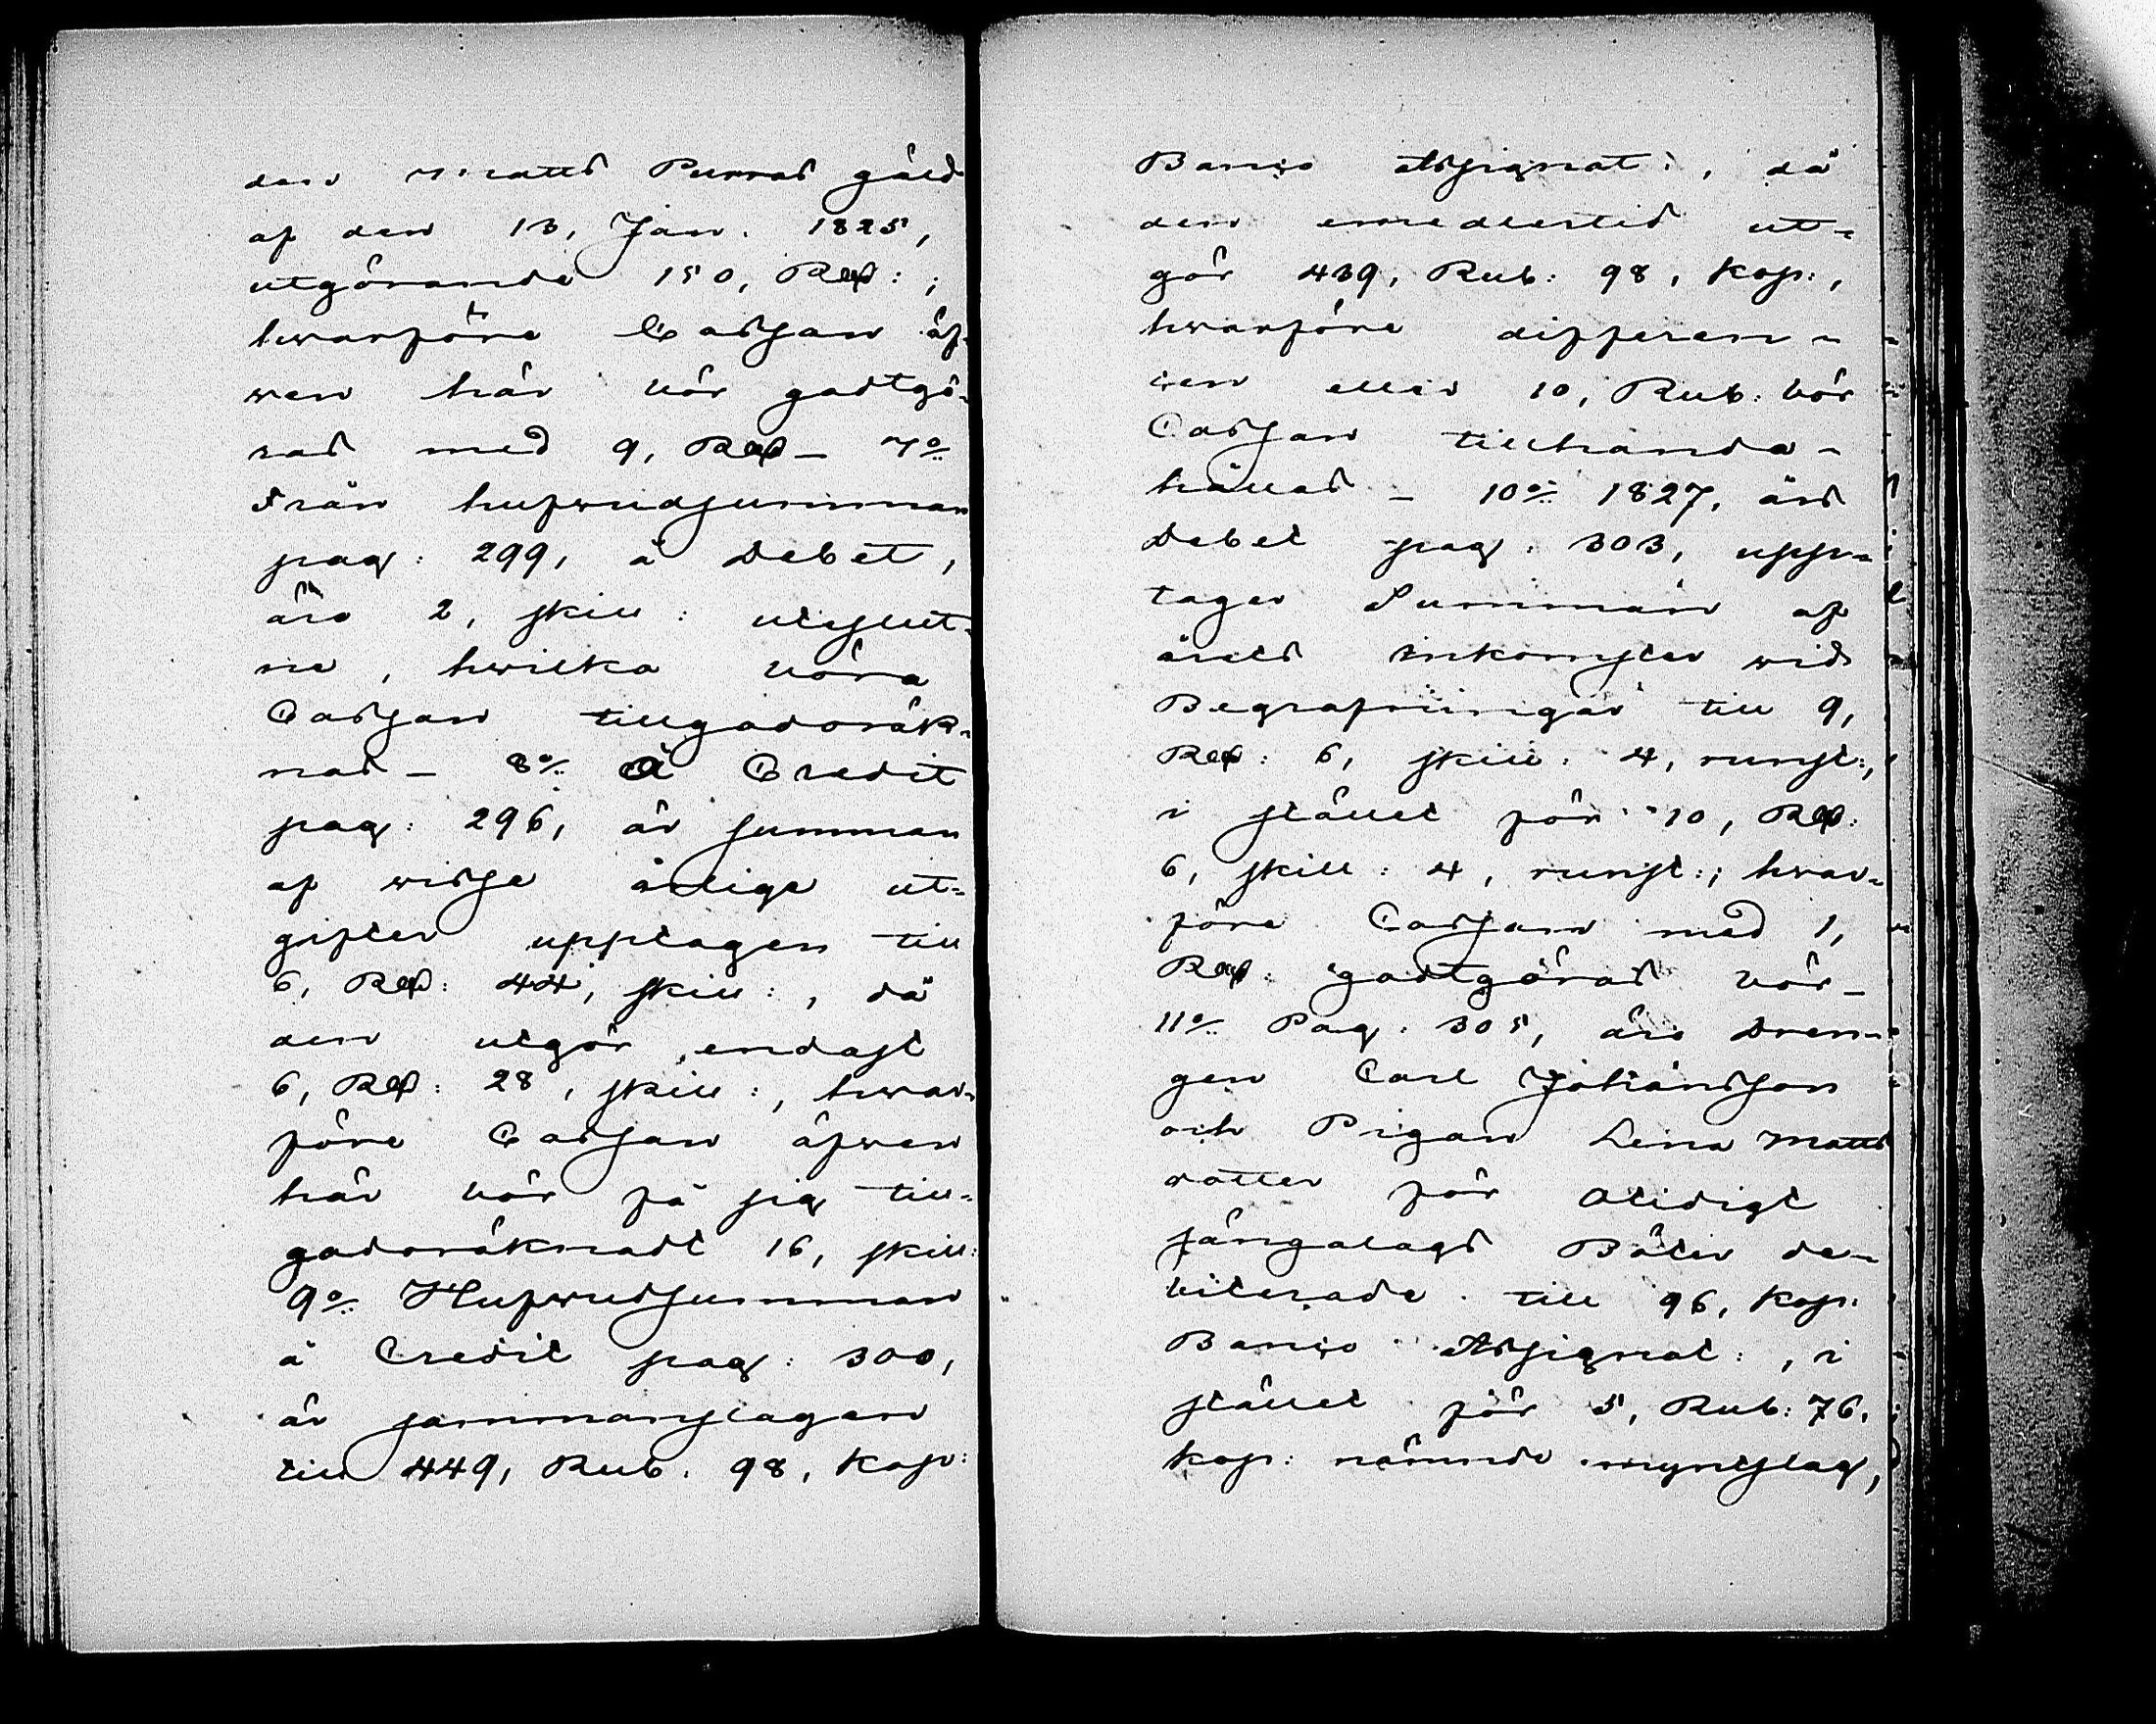 den Matts Purras gäld
af den 13, Jan. 1825,
utgörande 150, Rd:;
hwarföre Cassan äf-
wen här bör godtgö-
ras med 9, Rd — 7o
Från hufwudsumman
pag: 299, å Debet,
äro 2, skill: uteslut-
ne, hwilka böra
Cassan tillgodoräk-
nas — 8o Å Credit
pag: 296, är summan
af wisse årlige ut-
gifter upptagen till
6, Rd: 44, skill:, då
den utgör endast
6, Rd: 28, skill:, hwar-
före Cassan äfwen
här bör få sig till-
godoräknadt 16, skill:
9o Hufwudsumman
å Credit pag: 300,
är sammanslagen
till 449, Rub. 98, kop:
Banco Assignat:, då
den emedlertid ut-
gör 439, Rub: 98, kop:,
hwarföre differen-
cen eller 10, Rub: bör
Cassan tillhanda-
hållas — 10o 1827, års
Debet pag. 303, upp-
tager Summan af
årets inkomster wid
Begrafningar till 9,
Rd: 6, skill: 4, runst:,
i stället för 10, Rd:
6, skill: 4, runst:; hwar-
före Cassan med 1,
Rd: godtgöras bör —
11o Pag. 305, äro Dren-
gen Carl Johansson
och Pigan Lena Matts
dotter för otidigt
sängalags Böter de-
biterade till 96, kop:
Banco Assignat:, i
stället för 5, Rub: 76,
kop: nämnde myntslag,